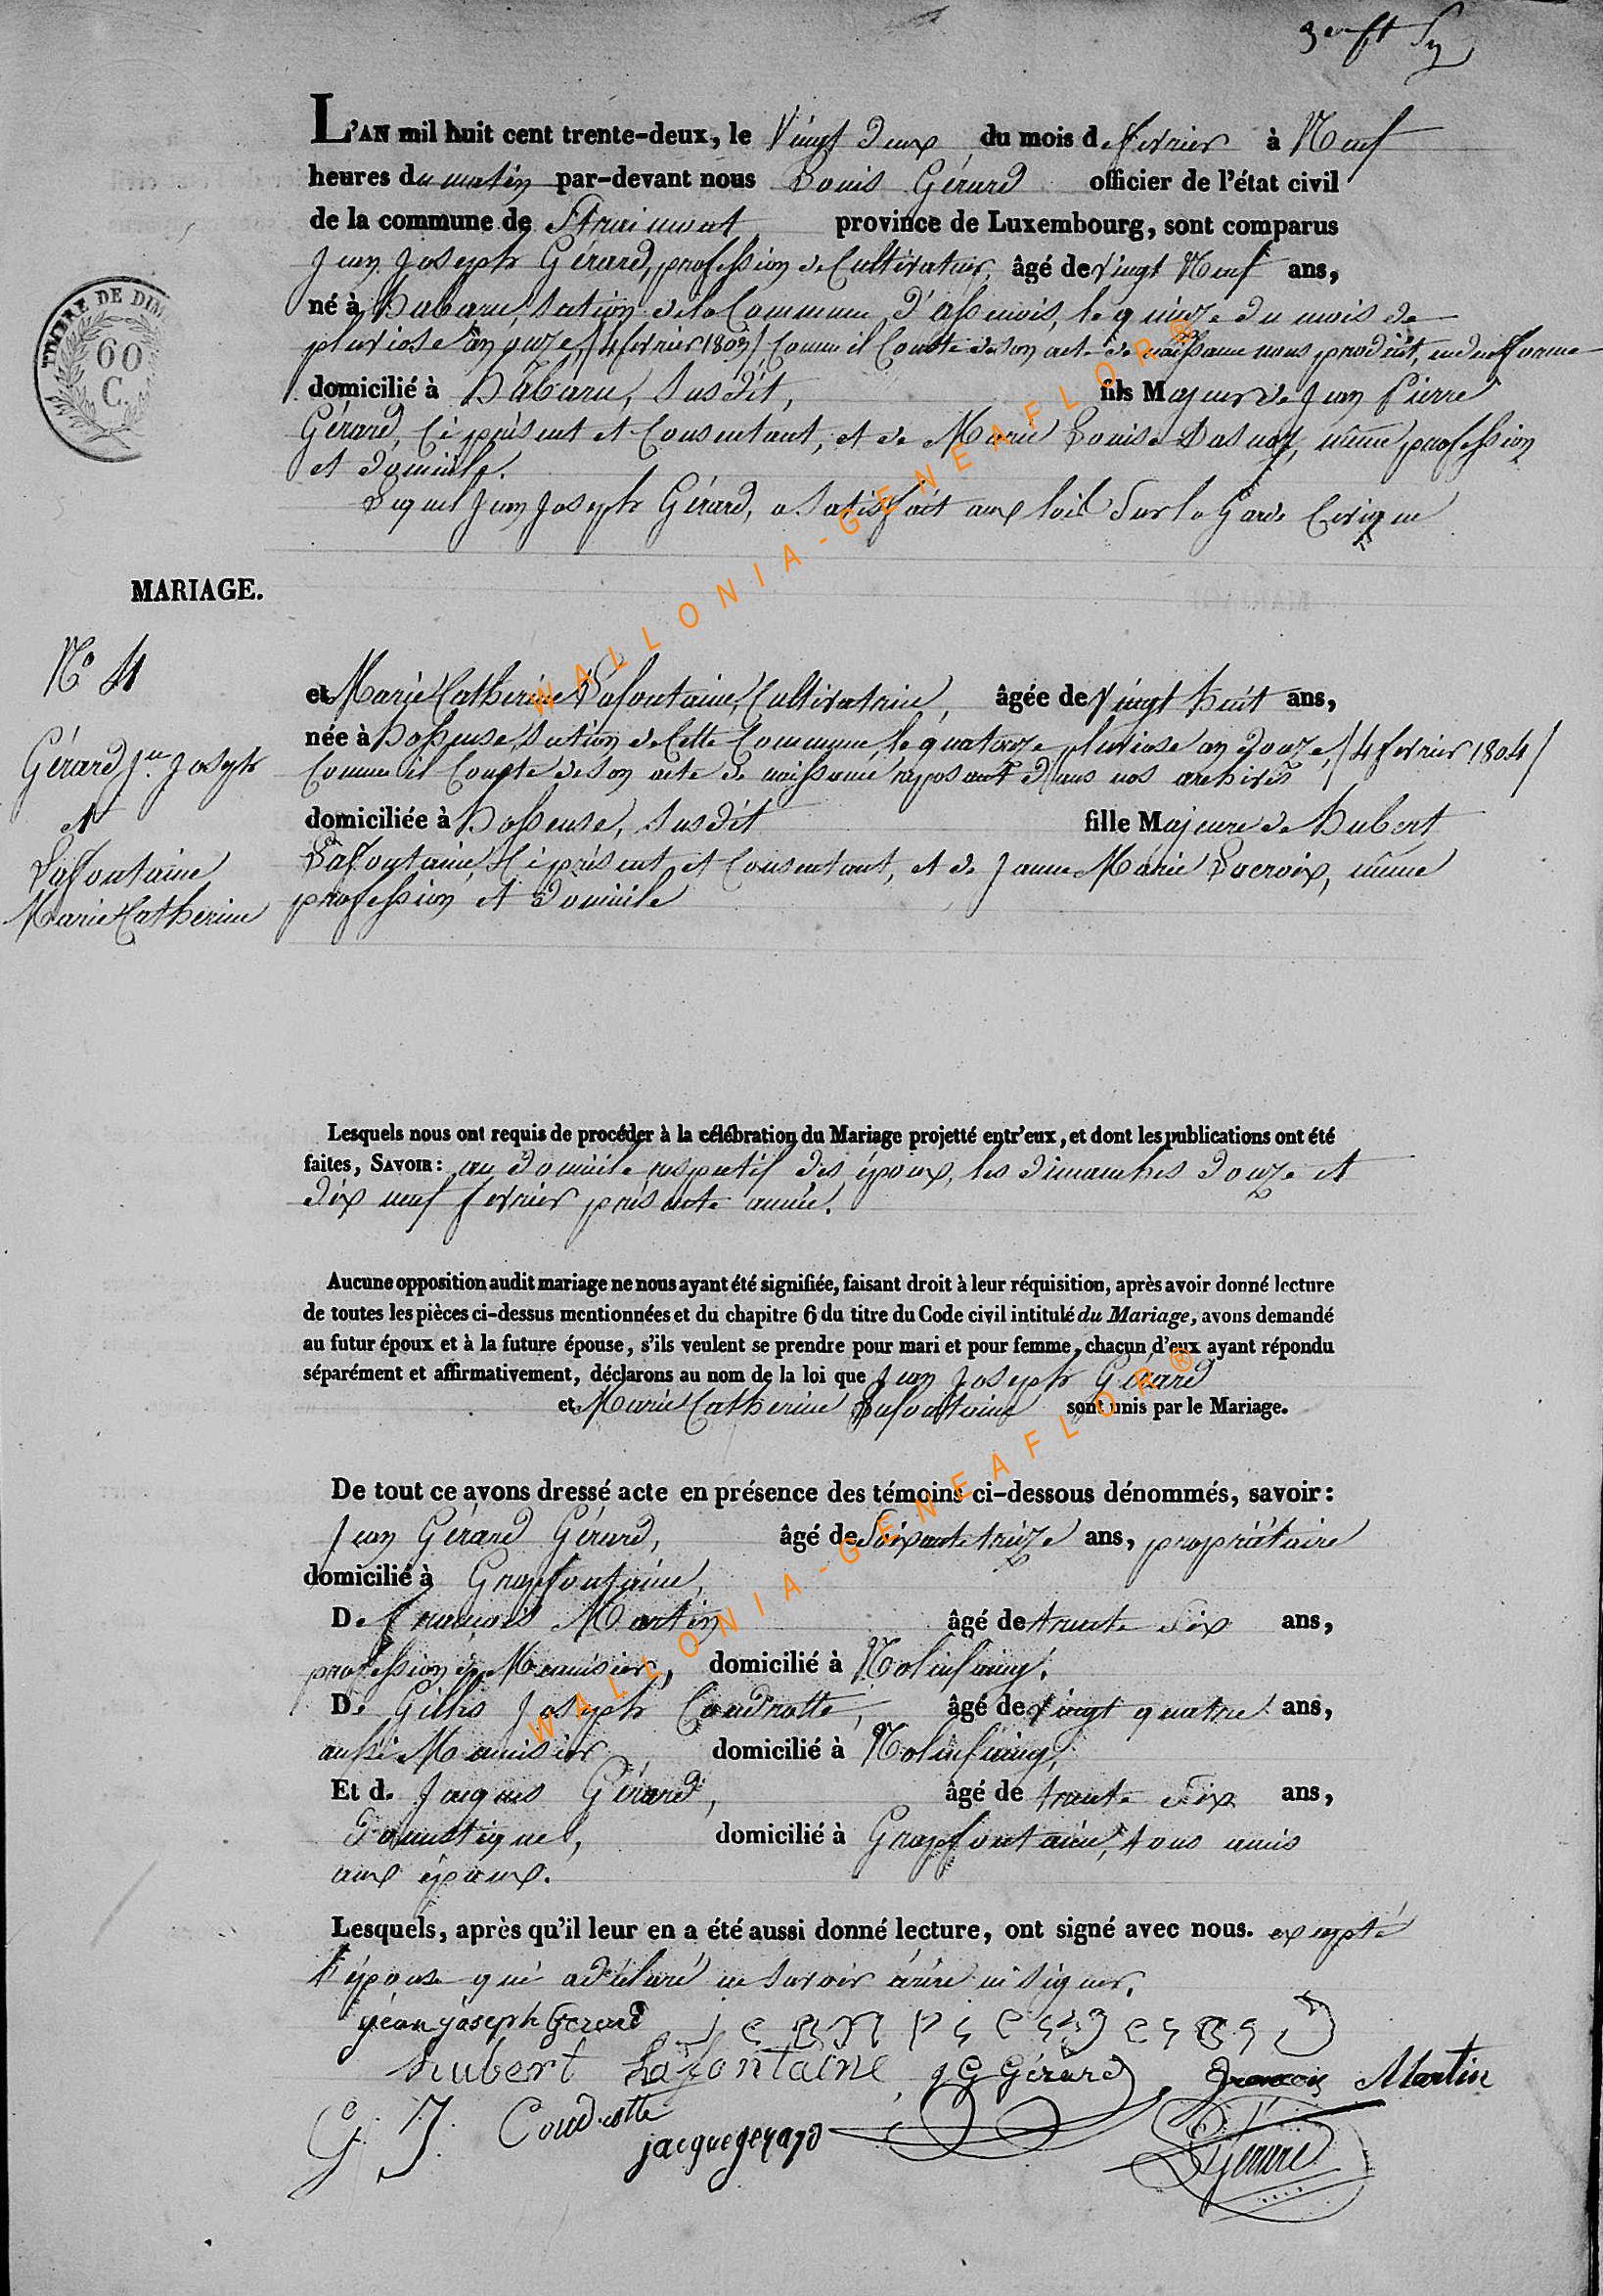 L'AN mil huit cent trente-deux, le Vingt Deux du mois de fevrier à Neuf
heures du matin par-devant nous Louis Gérard officier de l'état civil
de la commune de Straimont province de Luxembourg, sont comparus
Jean Joseph Gérard, profession de Cultivateur, âgé de vingt Neuf ans,
né à habaru, section de la Commune d'assenois, le quinze du mois de
pluviose an onze, /4 fevrier 1803/ Comme il Conste de son acte de naissance nous produit, en due forme
domicilié à habaru, Susdit, fils Majeur de Jean Pierre
Gérard, Ci présent et Consentant, et de Marie Louise Dasnoy, même profession
et domicile.
Lequel Jean Joseph Gérard, a Satisfait aux lois Sur la Garde Civique
MARIAGE.
N° 4
Gérard Jn Joseph
et
Lafontaine
Marie Catherine
et Marie Catherine Lafontaine, Cultivatrice, âgée de Vingt huit ans,
née à hosseuse, section de Cette Commune, le quatorze pluviose an douze, /4 fevrier 1804/
Comme il Conste de Son acte de naissance reposant Dans nos archives
domiciliée à hosseuse, Susdit fille Majeure de hubert
Lafontaine, Ci présent et Consentant, et de Jeanne Marie Lacroix, même
profession et domicile
Lesquels nous ont requis de procéder à la célébration du Mariage projetté entr'eux, et dont les publications ont été
faites, SAVOIR : au domicile respectif des époux, les dimanches douze et
dix neuf fevrier présente année.
Aucune opposition audit mariage ne nous ayant été signifiée, faisant droit à leur réquisition, après avoir donné lecture
de toutes les pièces ci-dessus mentionnées et du chapitre 6 du titre du Code civil intitulé du Mariage, avons demandé
au futur époux et à la future épouse, s'ils veulent se prendre pour mari et pour femme, chacun d'eux ayant répondu
séparément et affirmativement, déclarons au nom de la loi que Jean Joseph Gérard
et Marie Catherine Lafontaine sont unis par le Mariage.
De tout ce avons dressé acte en présence des témoins ci-dessous dénommés, savoir :
Jean Gérard Gérard, âgé de Soixante treize ans, propriétaire
domicilié à Grapfontaine,
De francois Martin âgé de trente Six ans,
profession de Menuisier, domicilié à Molinfaing.
De Gilles Joseph Coudrotte, âgé de Vingt quatre ans,
aussi Menuisier domicilié à Molinfaing,
Et de Jacques Gérard, âgé de trente Six ans,
Domestique, domicilié à Grapfontaine, tous amis
aux époux.
Lesquels, après qu'il leur en a été aussi donné lecture, ont signé avec nous. excepté
L'épouse qui a déclaré ne savoir écrire ni signer.
jéan joseph Gerard jean piere gerard
hubert Lafontaine, JG Gérard francois Martin
G. J. Coudrotte
jacque gerard LGerard
TIMBRE DE DIM
60
C.
WALLONIA-GENEAFLOR®
WALLONIA-GENEAFLOR®